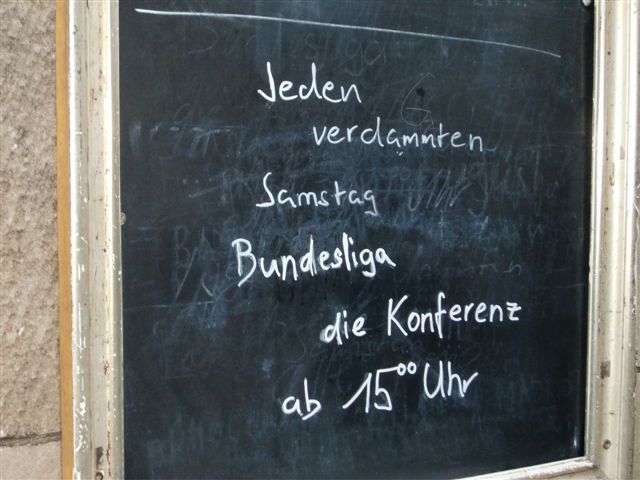 Jeden
verdammten
Samstag
Bundesliga
die Konferenz
ab 15⁰⁰ Uhr